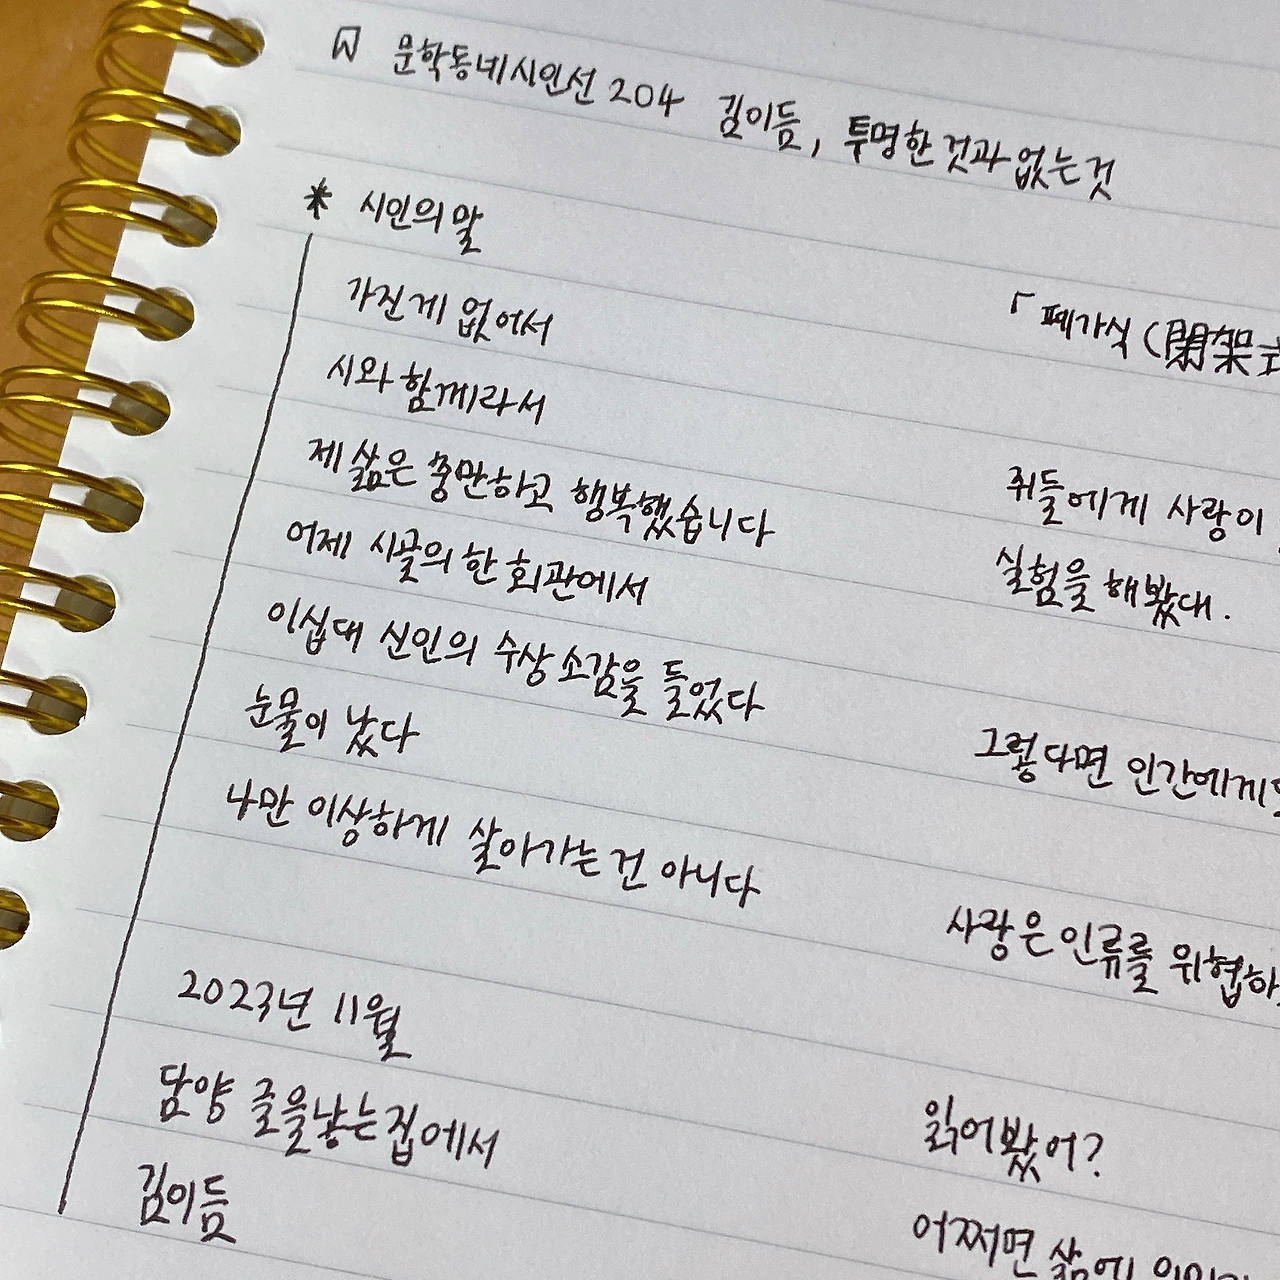 문학동네시인선 204 김이듬, 투명한 것과 없는 것
* 시인의 말
가진 게 없어서
시와 함께라서
제 삶은 충만하고 행복했습니다
어제 시골의 한 회관에서
이십대 신인의 수상 소감을 들었다
눈물이 났다
나만 이상하게 살아가는 건 아니다
2023년 11월
담양 글을낳는집에서
김이듬
「폐가식 (閉架式
쥐들에게 사랑이
실험을 해봤대.
그렇다면 인간에게
사랑은 인류를 위협하
읽어봤어?
어쩌면 삶에